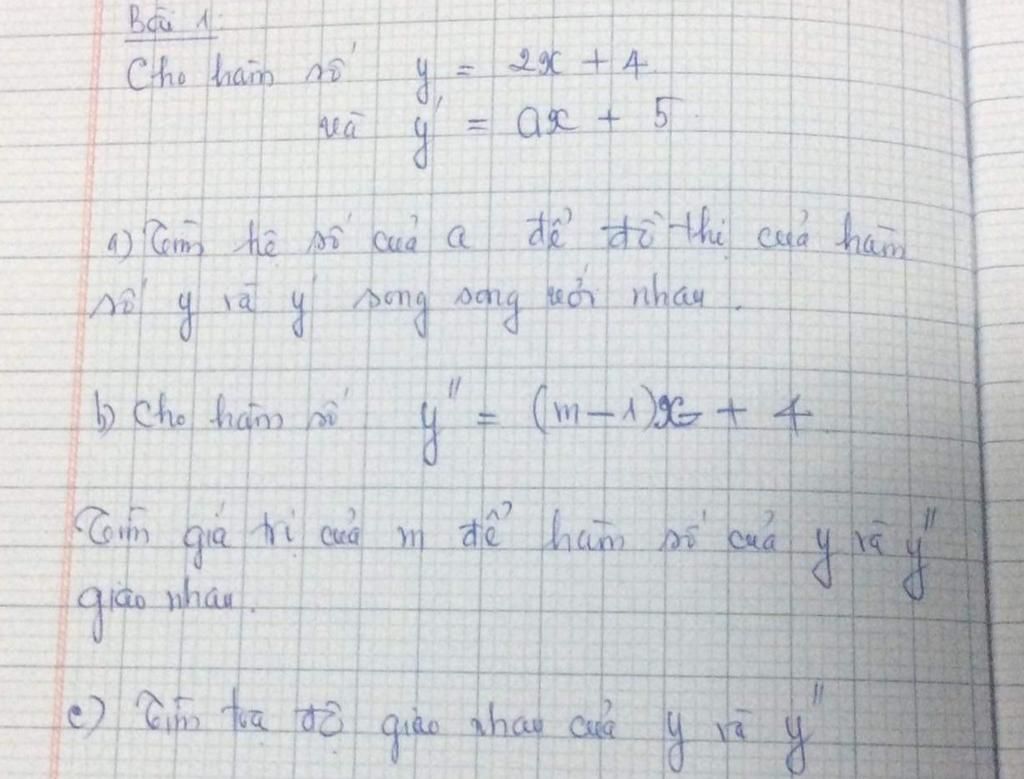 Bài 1:
Cho hàm số y = 2x + 4
và y' = ax + 5.
a) Tìm hệ số của a để đồ thị của hàm
số y và y' song song với nhau.
b) Cho hàm số y" = (m-1)x + 4
Tìm giá trị của m để hàm số của y và y"
giao nhau.
c) Tìm toạ độ giao nhau của y và y"